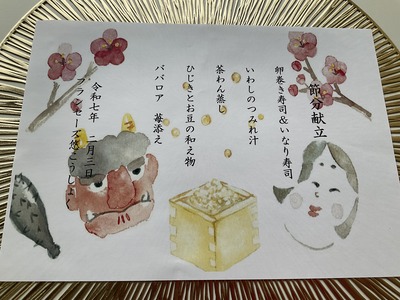 節分献立
卵巻き寿司&いなり寿司
いわしのつみれ汁
茶わん蒸し
ひじきとお豆の和え物
ババロア 苺添え
令和七年 二月三日
フランセーズ悠こうしえん